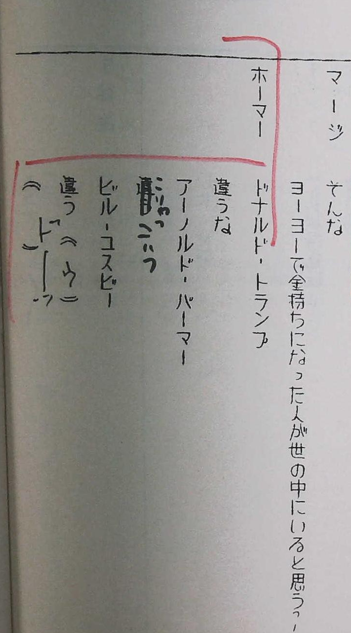 マージ
そんな
ヨーヨーで金持ちになった人が世の中にいると思う?
ホーマー
ドナルド・トランプ
違うな
アーノルド・パーマー
こいつ
ビル・コスビー
違う(ウ)
(ドーッ)